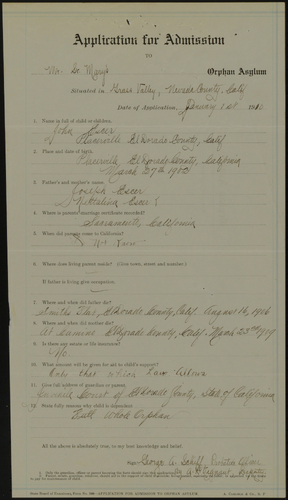 Application for Admission
TO
Mt. St. Mary's Orphan Asylum
Situated in Grass Valley, Nevada County, Calif
Date of Application, January 1st 191
1. Name in full of child or children.
John Escer
Placerville El Dorado County, Calif
2. Place and date of birth.
Placerville, El Dorado County, California
March 27th
3. Father's and mother's name.
Joseph Escer
Escer
4. Where is parents' marriage certificate recorded?
Sacramento, California
5. When did parents come to California?
Not Known
6. Where does living parent reside? (Give town, street and number.)
If father is living give occupation.
7. Where and when did father die?
Smiths Flat, El Dorado County, Calif. August 16, 1906
8. Where and when did mother die?
At Camino El Dorado County, Calif. March 23rd 1919
9. Is there any estate or life insurance?
No.
10. What amount will be given for aid to child's support?
Only that which Law Allows
11. Give full address of guardian or parent.
Juvenile Court of El Dorado County, State of California
12. State fully reasons why child is dependent?
Full Whole Orphan
All the above is absolutely true, to my best knowledge and belief.
George A. Probation Officer